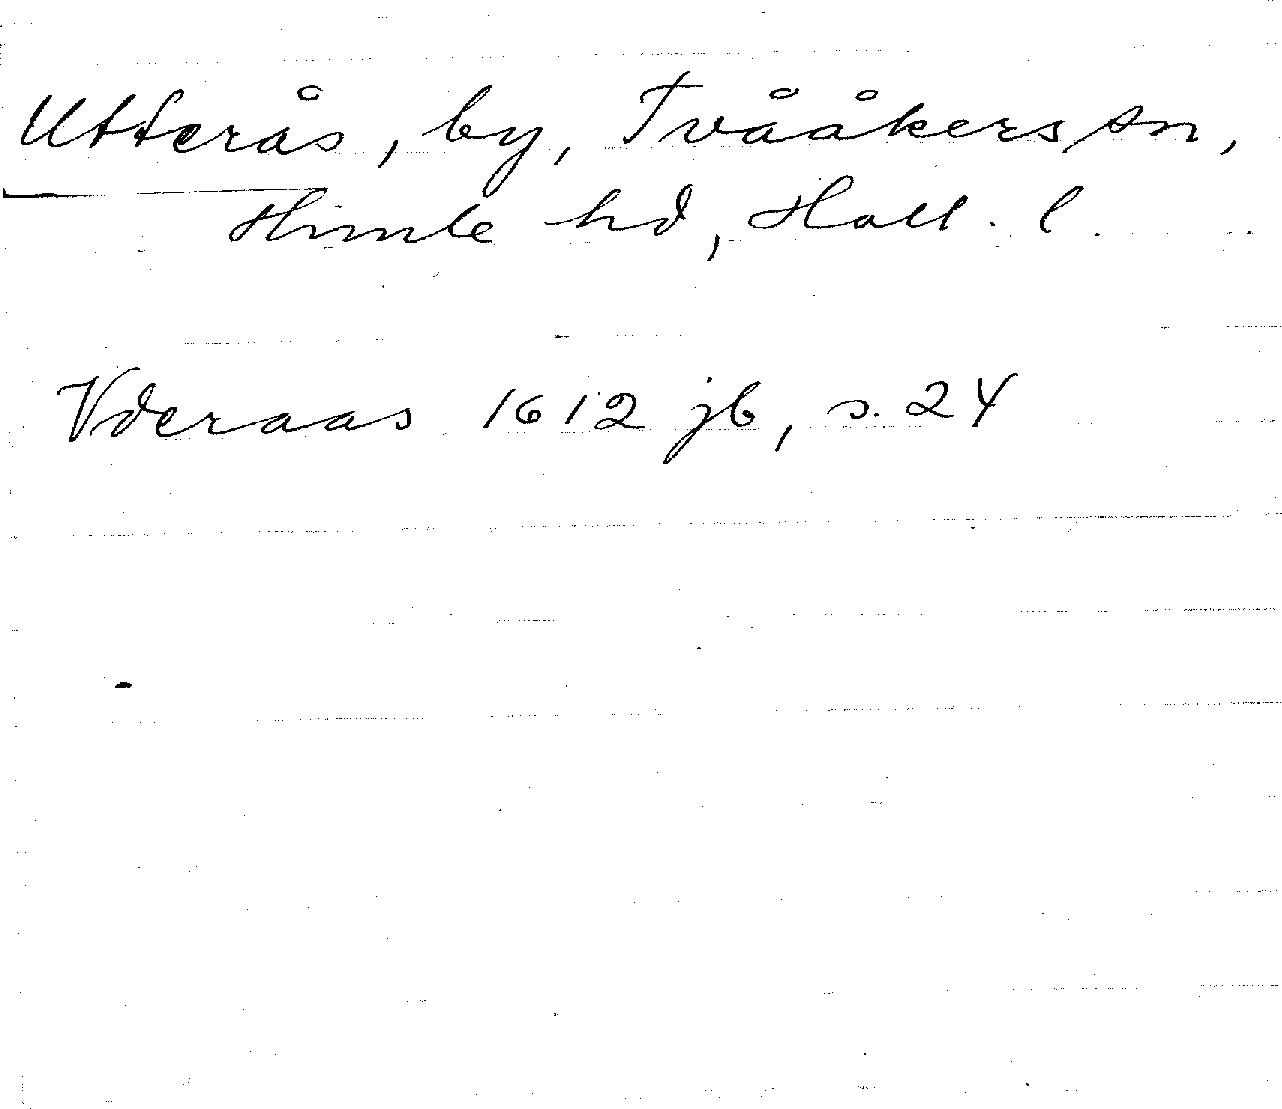 Utterås, by, Tvååkers sn,
Himle hd, Hall. l.
Vderaas 1612 jb, s. 24